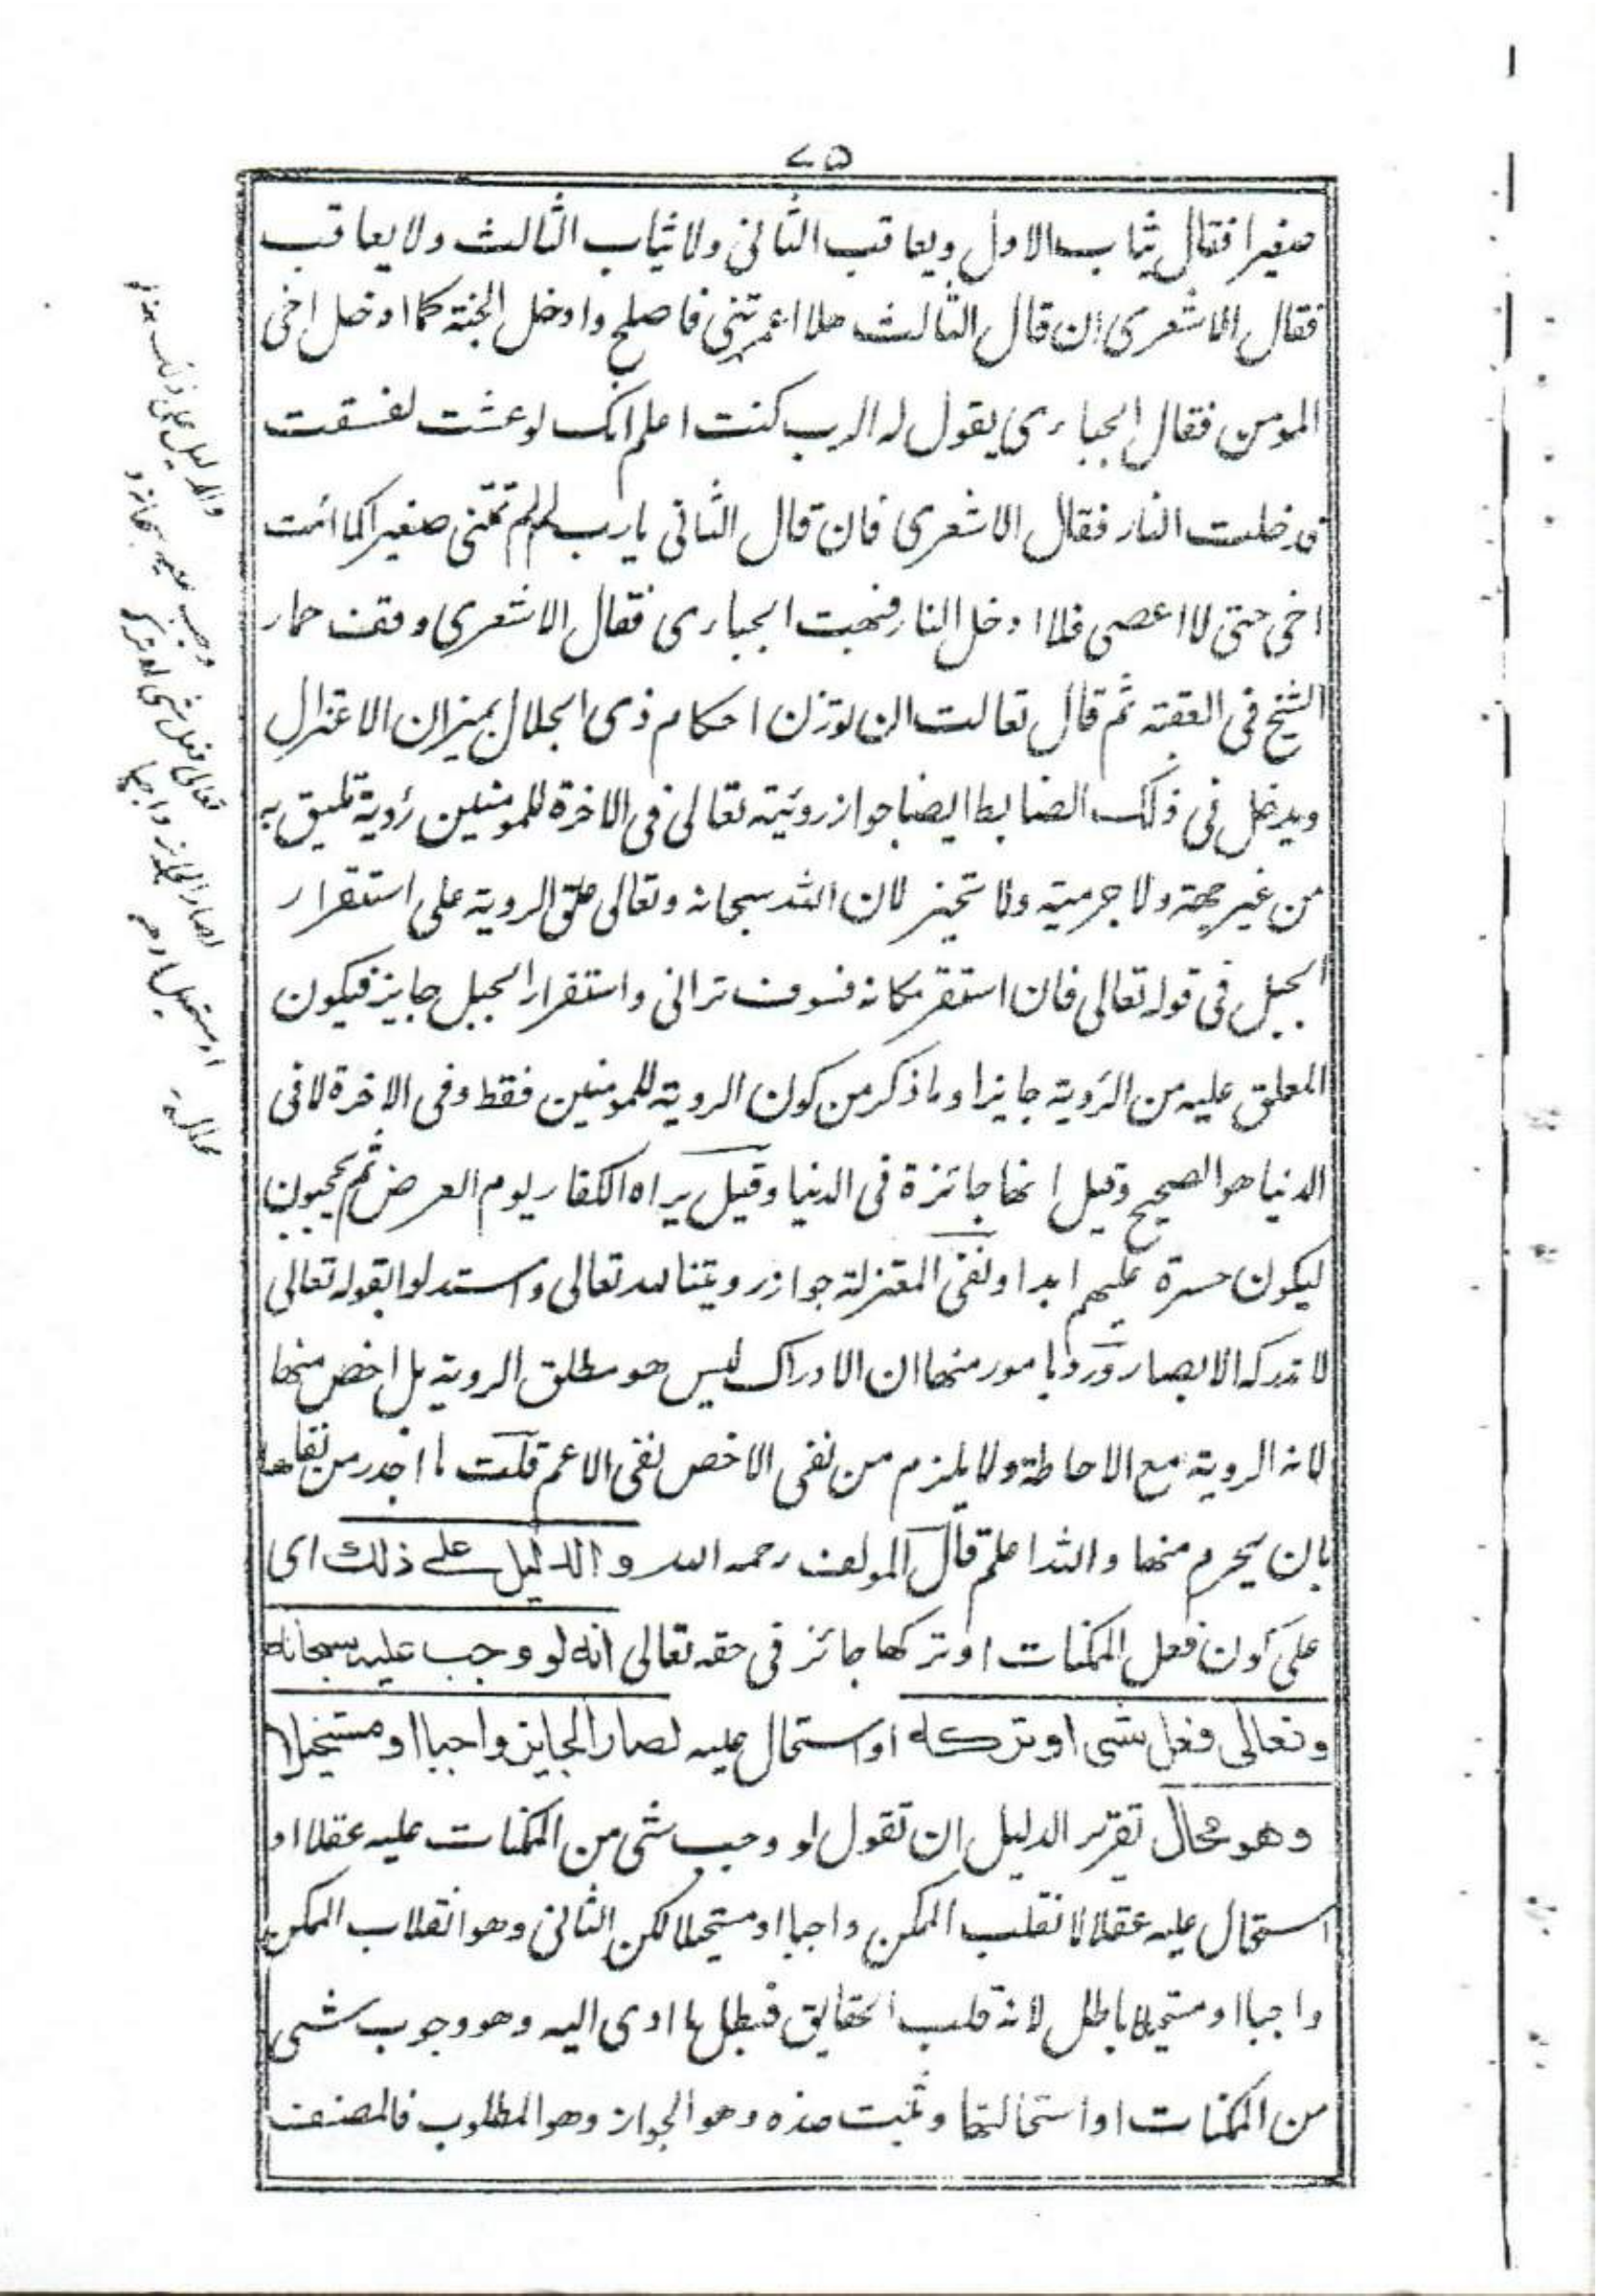 ٧٥
صغيرا فقال يثاب الاول ويعاقب الثانى ولا يثاب الثالث ولا يعاقب
فقال الاشعرى ان قال الثالث هلا اعمرتنى فاصلح وادخل الجنة كما ادخل اخى
المومن فقال الجباءى يقول له الرب كنت اعلم انك لوعشت لفسقت
فدخلت النار فقال الاشعرى فان قال الثانى يارب لم لم تمتنى صغيرا كما امت
اخى حتى لا اعصى فلا ادخل النار فبهت الجباءى فقال الاشعرى وقف حمار
الشيخ فى العقبة ثم قال تعالت ان توزن احكام ذى الجلال بميزان الاعتزال
ويدخل فى ذلك الضابط ايضا جواز روئيته تعالى فى الاخرة للمومنين رؤية تليق به
من غير جهة ولا جرمية ولا تحيز لان الله سبحانه وتعالى علق الروية على استقرار
الجبل فى قوله تعالى فان استقر مكانه فسوف ترانى واستقرار الجبل جايز فيكون
المعلق عليه من الرؤية جايزا وماذكر من كون الروية للمومنين فقط وفى الاخرة لا فى
الدنيا هو الصحيح وقيل انها جائزة فى الدنيا وقيل يراه الكفار يوم العرض ثم يحجبون
ليكون حسرة عليهم ابدا ونفى المعتزلة جواز رويتنا لله تعالى واستدلوا بقوله تعالى
لا تدركه الابصار ورد بامور منها ان الادراك ليس هو مطلق الروية بل اخص منها
لانه الروية مع الاحاطة ولا يلزم من نفى الاخص نفى الاعم قلت ما اجدر من نفاها
بان يحرم منها والله اعلم قال المولف رحمه الله والدليل على ذلك اى
على كون فعل الممكنات اوتركها جائز فى حقه تعالى انه لو وجب عليه سبحانه
وتعالى فعل شى اوتركه اواستحال عليه لصار الجايز واجبا اومستحيلا
وهو محال تقرير الدليل ان تقول لو وجب شى من الممكنات عليه عقلا او
استحال عليه عقلا لانقلب الممكن واجبا اومستحيلا لكن الثانى وهو انقلاب الممكن
واجبا اومستحيلا باطل لانه قلب الحقايق فبطل ما ادى اليه وهو وجوب شى
من الممكنات او استحالتها وثبت ضده وهو الجواز وهو المطلوب فالمصنف
والدليل على ذلك انه لو
وجب عليه سبحانه و
تعالى فعل شى او تركه
لصار الجايز واجبا
او مستحيلا وهو
محال